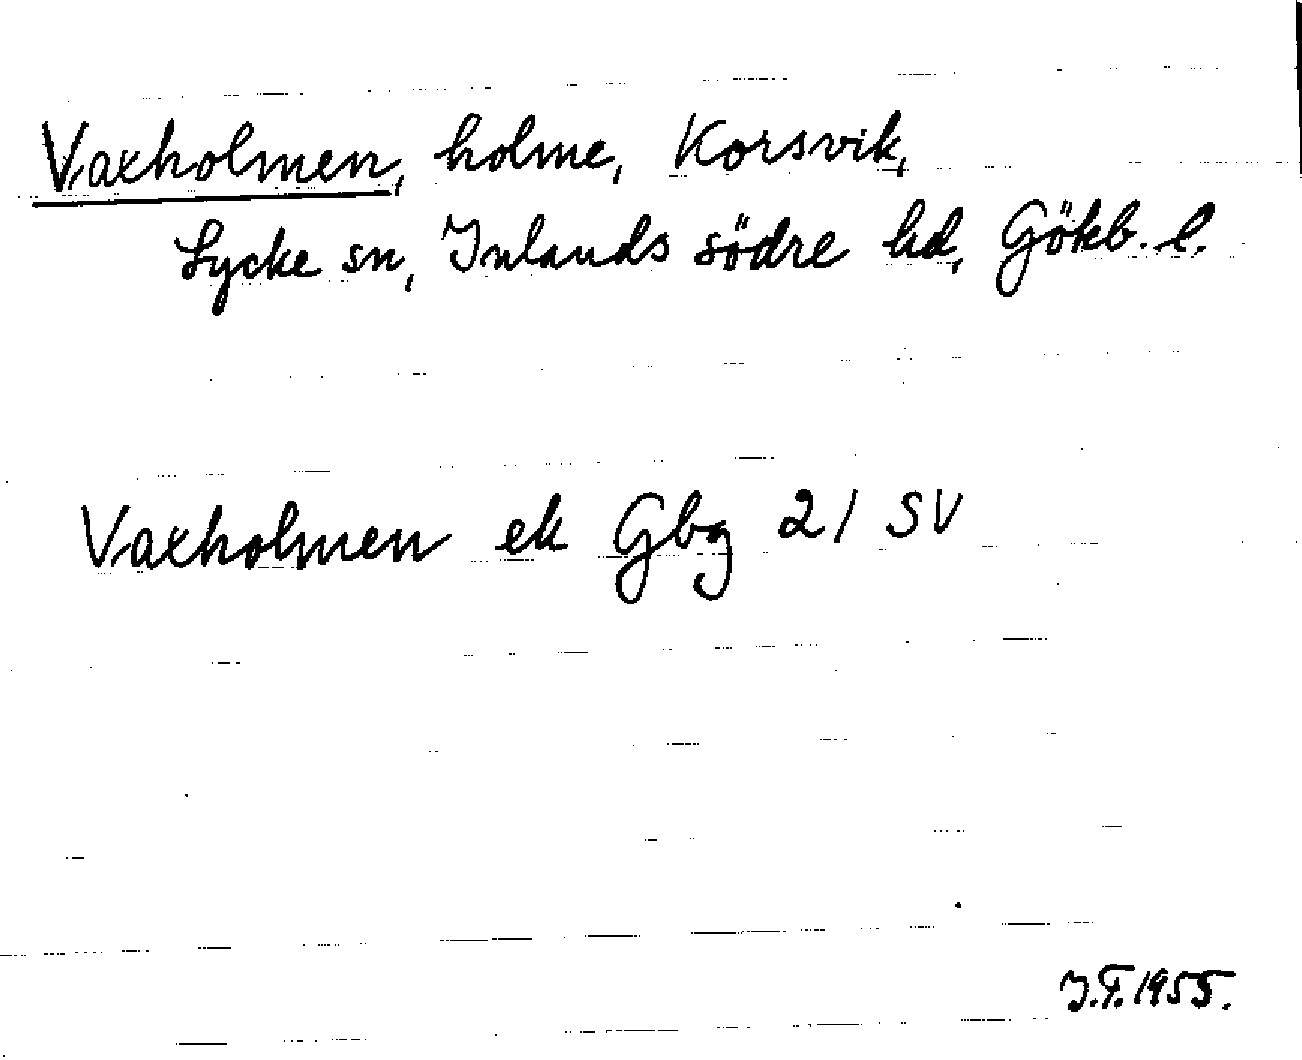 Vaxholmen, holme, Korsvik,
Lycke sn, Inlands södre hd, Gökb. l.
Vaxholmen ek Gbg 21 SV
J.F. 1955.